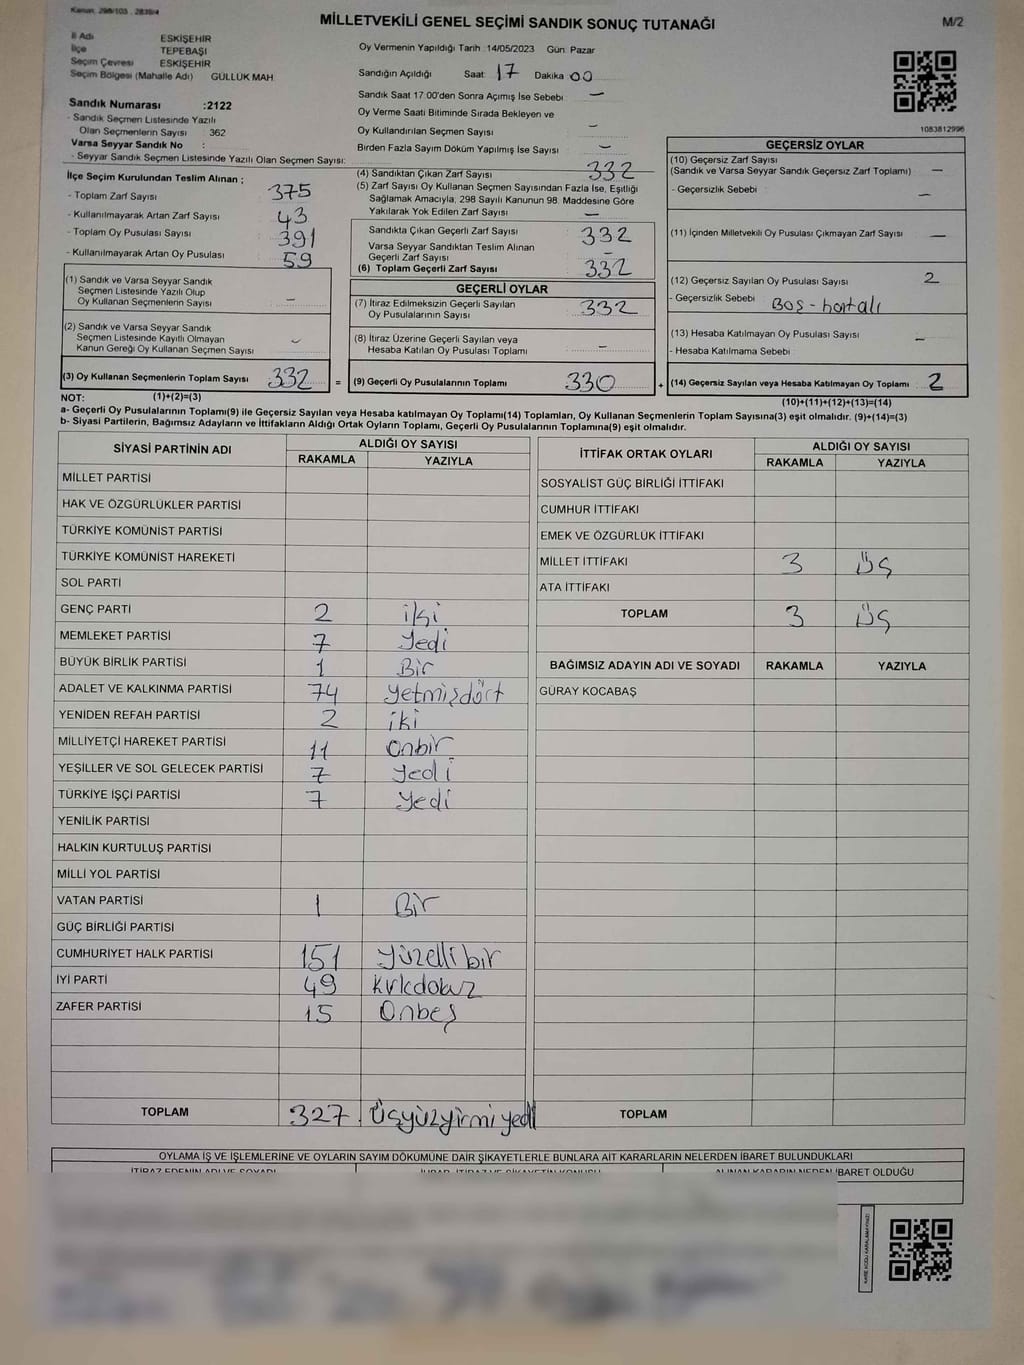 Kanun: 298/105 - 2839/4
MİLLETVEKİLİ GENEL SEÇİMİ SANDIK SONUÇ TUTANAĞI
M/2
İl Adı ESKİŞEHİR
İlçe TEPEBAŞI
Seçim Çevresi ESKİŞEHİR
Seçim Bölgesi (Mahalle Adı) GÜLLÜK MAH.
Oy Vermenin Yapıldığı Tarih :14/05/2023 Gün: Pazar
Sandığın Açıldığı Saat: 17 Dakika 00
Sandık Saat 17:00'den Sonra Açımış İse Sebebi : —
Oy Verme Saati Bitiminde Sırada Bekleyen ve
Oy Kullandırılan Seçmen Sayısı : —
Birden Fazla Sayım Döküm Yapılmış İse Sayısı : —
1083812996
Sandık Numarası :2122
- Sandık Seçmen Listesinde Yazılı
Olan Seçmenlerin Sayısı : 362
Varsa Seyyar Sandık No :
- Seyyar Sandık Seçmen Listesinde Yazılı Olan Seçmen Sayısı:
İlçe Seçim Kurulundan Teslim Alınan ;
- Toplam Zarf Sayısı : 375
- Kullanılmayarak Artan Zarf Sayısı : 43
- Toplam Oy Pusulası Sayısı : 391
- Kullanılmayarak Artan Oy Pusulası : 59
(1) Sandık ve Varsa Seyyar Sandık
Seçmen Listesinde Yazılı Olup
Oy Kullanan Seçmenlerin Sayısı : —
(2) Sandık ve Varsa Seyyar Sandık
Seçmen Listesinde Kayıtlı Olmayan
Kanun Gereği Oy Kullanan Seçmen Sayısı : —
(3) Oy Kullanan Seçmenlerin Toplam Sayısı 332 =
(4) Sandıktan Çıkan Zarf Sayısı : 332
(5) Zarf Sayısı Oy Kullanan Seçmen Sayısından Fazla İse, Eşitliği
Sağlamak Amacıyla, 298 Sayılı Kanunun 98. Maddesine Göre
Yakılarak Yok Edilen Zarf Sayısı : —
Sandıkta Çıkan Geçerli Zarf Sayısı : 332
Varsa Seyyar Sandıktan Teslim Alınan
Geçerli Zarf Sayısı : —
(6) Toplam Geçerli Zarf Sayısı : 332
GEÇERLİ OYLAR
(7) İtiraz Edilmeksizin Geçerli Sayılan
Oy Pusulalarının Sayısı : 332
(8) İtiraz Üzerine Geçerli Sayılan veya
Hesaba Katılan Oy Pusulası Toplamı : —
(9) Geçerli Oy Pusulalarının Toplamı : 330 +
GEÇERSİZ OYLAR
(10) Geçersiz Zarf Sayısı
(Sandık ve Varsa Seyyar Sandık Geçersiz Zarf Toplamı) : —
- Geçersizlik Sebebi : —
(11) İçinden Milletvekili Oy Pusulası Çıkmayan Zarf Sayısı : —
(12) Geçersiz Sayılan Oy Pusulası Sayısı : 2
- Geçersizlik Sebebi : Boş - hatalı
(13) Hesaba Katılmayan Oy Pusulası Sayısı : —
- Hesaba Katılmama Sebebi :
(14) Geçersiz Sayılan veya Hesaba Katılmayan Oy Toplamı : 2
NOT: (1)+(2)=(3)
(10)+(11)+(12)+(13)=(14)
a- Geçerli Oy Pusulalarının Toplamı(9) ile Geçersiz Sayılan veya Hesaba katılmayan Oy Toplamı(14) Toplamları, Oy Kullanan Seçmenlerin Toplam Sayısına(3) eşit olmalıdır. (9)+(14)=(3)
b- Siyasi Partilerin, Bağımsız Adayların ve İttifakların Aldığı Ortak Oyların Toplamı, Geçerli Oy Pusulalarının Toplamına(9) eşit olmalıdır.
SİYASİ PARTİNİN ADI ALDIĞI OY SAYISI
RAKAMLA YAZIYLA
MİLLET PARTİSİ
HAK VE ÖZGÜRLÜKLER PARTİSİ
TÜRKİYE KOMÜNİST PARTİSİ
TÜRKİYE KOMÜNİST HAREKETİ
SOL PARTİ
GENÇ PARTİ 2 iki
MEMLEKET PARTİSİ 7 Yedi
BÜYÜK BİRLİK PARTİSİ 1 Bir
ADALET VE KALKINMA PARTİSİ 74 yetmişdört
YENİDEN REFAH PARTİSİ 2 iki
MİLLİYETÇİ HAREKET PARTİSİ 11 onbir
YEŞİLLER VE SOL GELECEK PARTİSİ 7 yedi
TÜRKİYE İŞÇİ PARTİSİ 7 yedi
YENİLİK PARTİSİ
HALKIN KURTULUŞ PARTİSİ
MİLLİ YOL PARTİSİ
VATAN PARTİSİ 1 Bir
GÜÇ BİRLİĞİ PARTİSİ
CUMHURİYET HALK PARTİSİ 151 yüzellibir
İYİ PARTİ 49 kırkdokuz
ZAFER PARTİSİ 15 Onbeş
TOPLAM 327 üçyüzyirmiyedi
İTTİFAK ORTAK OYLARI ALDIĞI OY SAYISI
RAKAMLA YAZIYLA
SOSYALİST GÜÇ BİRLİĞİ İTTİFAKI
CUMHUR İTTİFAKI
EMEK VE ÖZGÜRLÜK İTTİFAKI
MİLLET İTTİFAKI 3 üç
ATA İTTİFAKI
TOPLAM 3 üç
BAĞIMSIZ ADAYIN ADI VE SOYADI RAKAMLA YAZIYLA
GÜRAY KOCABAŞ
TOPLAM
OYLAMA İŞ VE İŞLEMLERİNE VE OYLARIN SAYIM DÖKÜMÜNE DAİR ŞİKAYETLERLE BUNLARA AİT KARARLARIN NELERDEN İBARET BULUNDUKLARI
İTİRAZ EDENİN ADI VE SOYADI
ALINAN KARARIN NEDEN İBARET OLDUĞU
KARE KODU KARALAMAYINIZ!